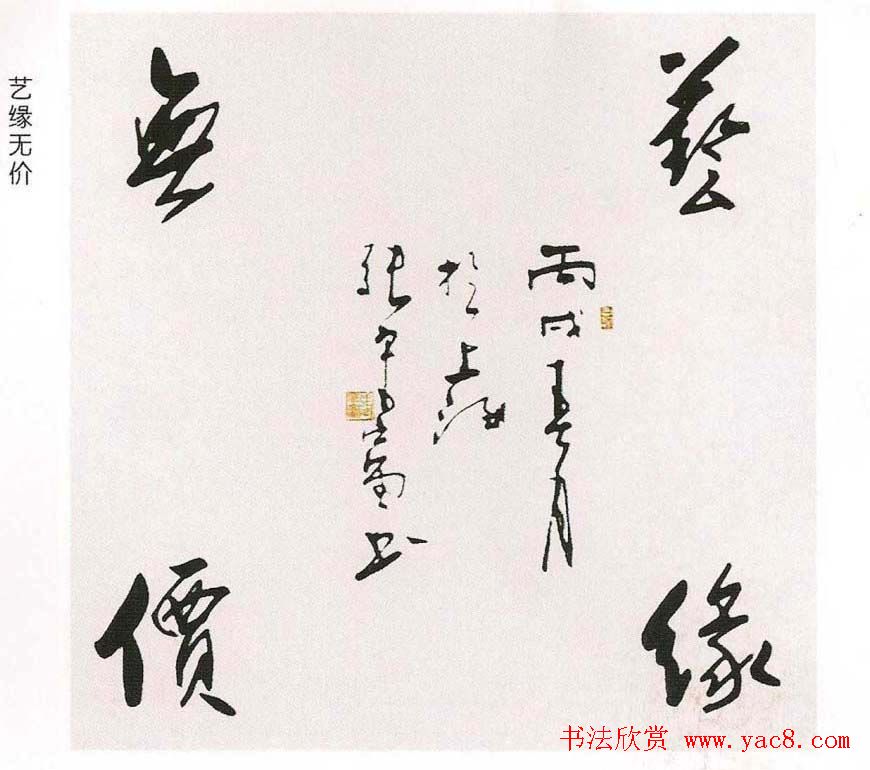 艺缘无价
藝緣
無價
丙戌春月
於上海
張
書
书法欣赏 www.yac8.com